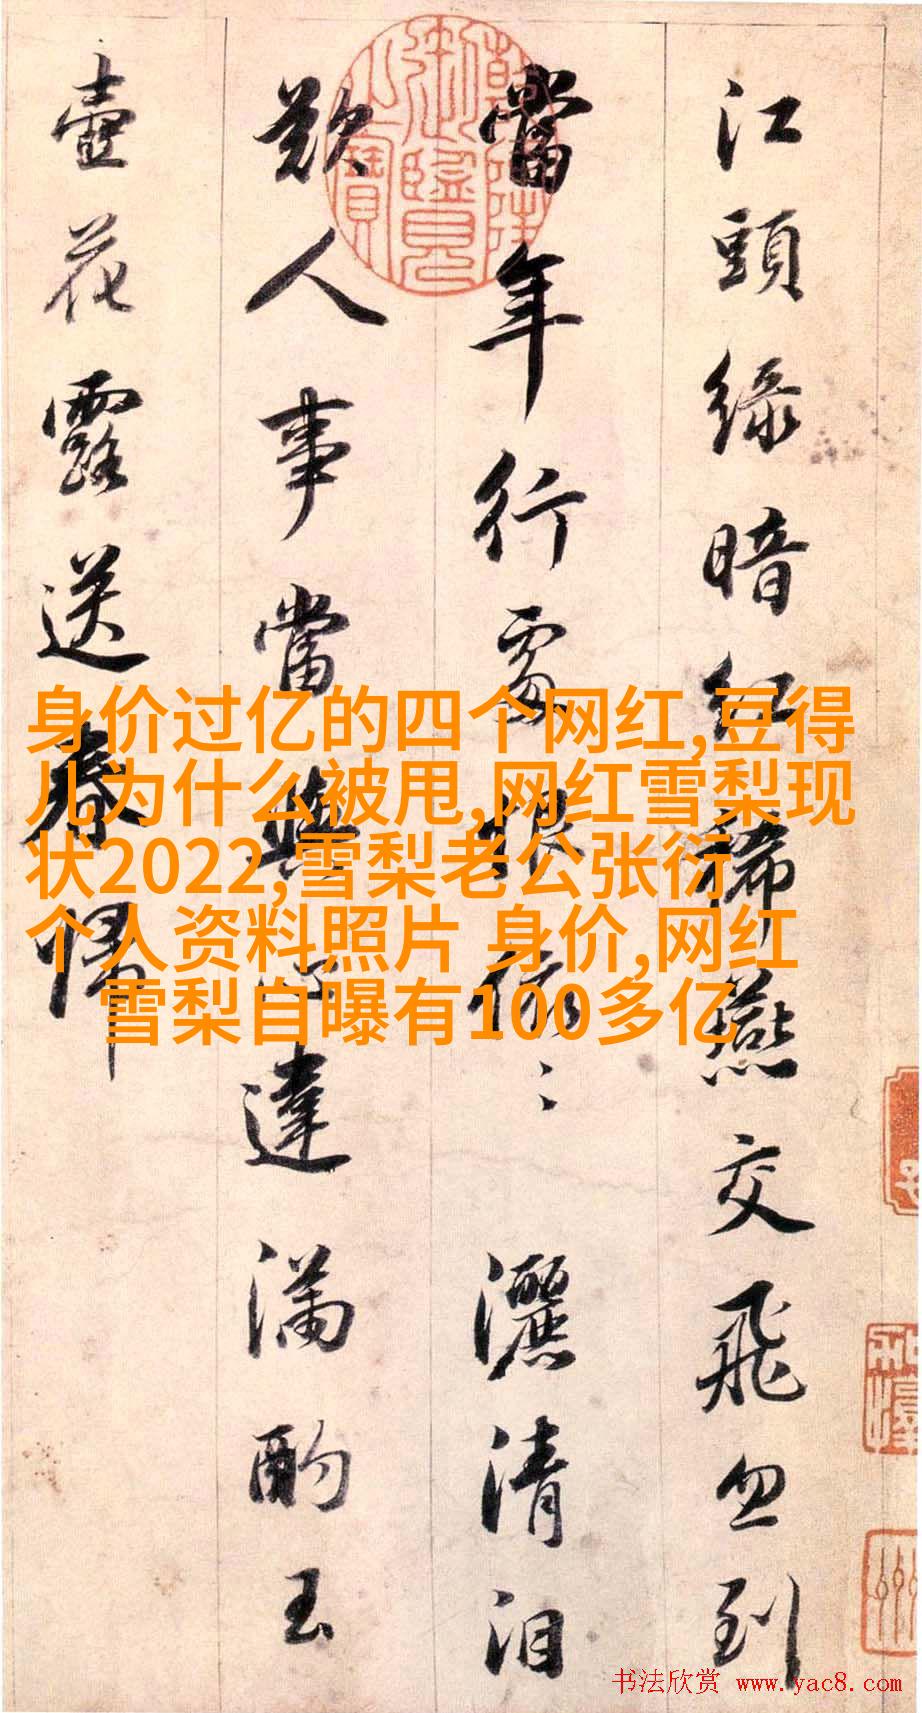 江頭綠暗紅稀燕交飛忽到
當年行處恨依〻灑清泪
歎人事當與心違滿酌玉
壺花露送春歸
乾隆御覽之寶
身价过亿的四个网红,豆得
儿为什么被甩,网红雪梨现
状2022,雪梨老公张衍
个人资料照片 身价,网红
雪梨自曝有100多亿
书法欣赏 www.yac8.com